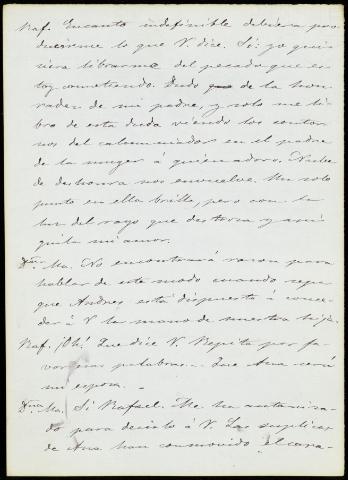 Raf. Encanto indefinible debiera pro
ducirme lo que V. dice. Si: yo qui
siera librarme del pesado que es
toy cometiendo. Dudo de la hon
radez de mi padre, y solo me li
bro de esta duda viendo los contor
nos del calumniador en el padre
de la muger á quien adoro. Nube
de deshonra nos envuelve. Un solo
punto en ella brilla, pero con la
luz del rayo que destroza y ani
quila mi amor.
Dña. Ma. No encontrará razon para
hablar de este modo cuando sepa
que Andres está dispuesto á conce
der á V la mano de nuestra hija.
Raf. ¡Oh! Que dice V. Repita por fa
vor esas palabras... Que Ana será
mi esposa. -
Dña. Ma. Si Rafael. Me ha autoriza
do para decirlo á V. Las suplicas
de Ana han conmovido el cora-